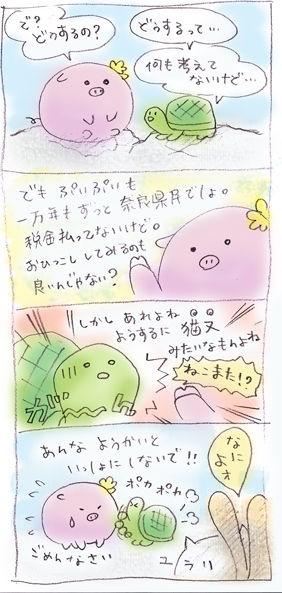 で?
どうするの?
どうするって…
何も考えて
ないけど…
でも ぷいぷいも
一万年もずっと 奈良県民でしょ。
税金払ってないけど。
おひっこし してみるのも
良いんじゃない?
しかし あれよね
ようするに 猫又
みたいなもんよね
ねこまた!?
ガガ
あんな ようかいと
いっしょに しないで!!
ポカポカ
なによぇ
ごめんなさい
ユラリ